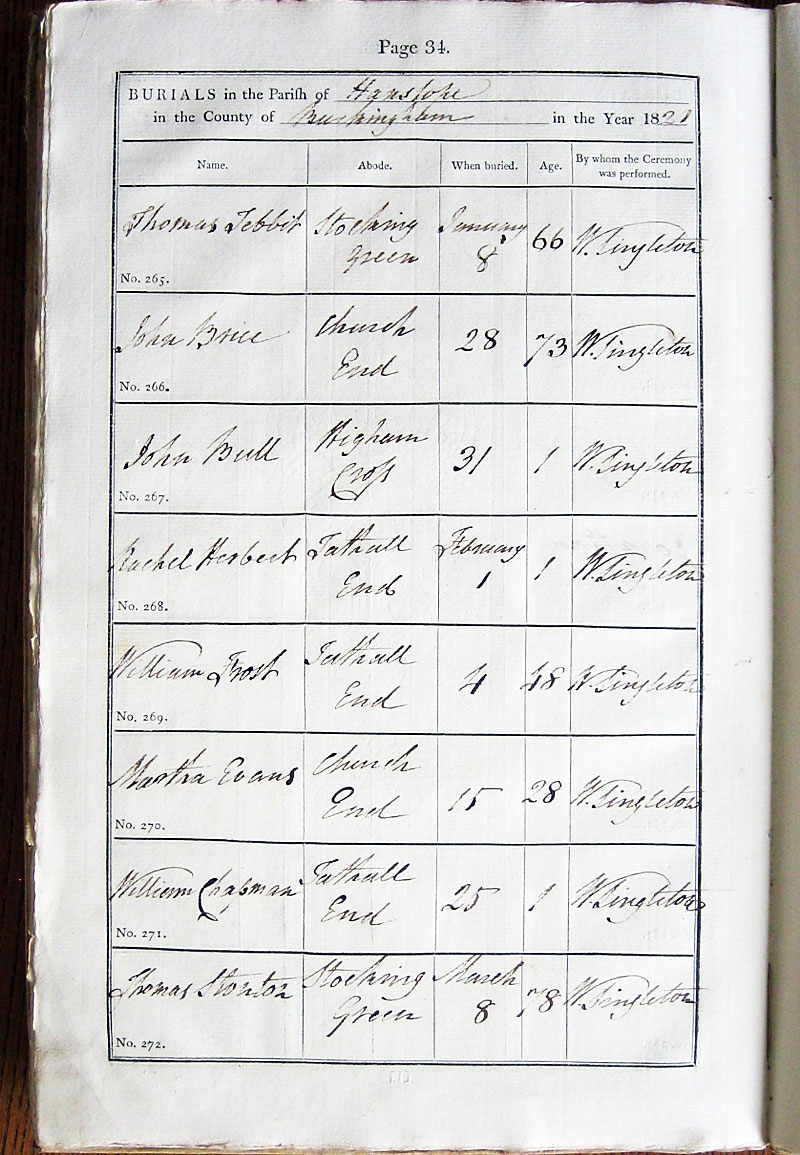 Page 34.
BURIALS in the Parish of Hanslope
in the County of Buckingham in the Year 1821
Name. Abode. When buried. Age. By whom the Ceremony
was performed.
Thomas Tebbit Stocking January 66 W. Singleton
Green 8
No. 265.
John Brice Church 28 73 W. Singleton
End
No. 266.
John Bull Higham 31 1 W. Singleton
Cross
No. 267.
Rachel Herbert Tathall February 1 W. Singleton
End 1
No. 268.
William Frost Tathall 4 48 W. Singleton
End
No. 269.
Martha Evans Church 15 28 W. Singleton
End
No. 270.
William Chapman Tathall 25 1 W. Singleton
End
No. 271.
Thomas Stonton Stocking March 78 W. Singleton
Green 8
No. 272.